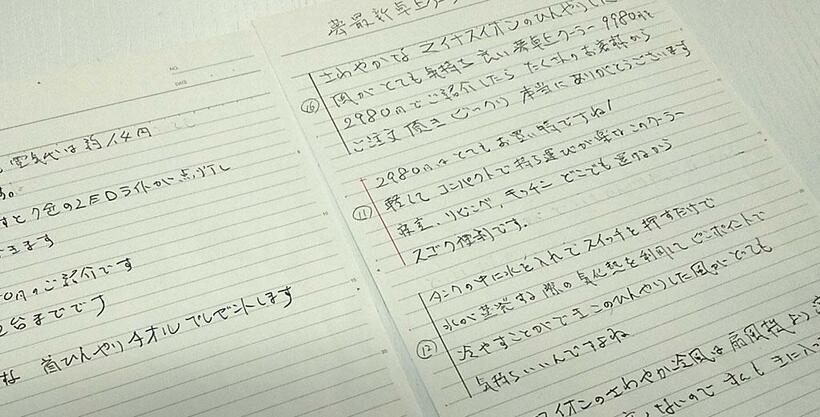 電気代は約14円
すと7色のLEDライトが点灯し
きます
0円のご紹介です
2台までです
首ひんやりタオルプレゼントします
最新卓上
さわやかなマイナスイオンのひんやりした
風がとても気持ち良い 卓上クーラー 9980円を
⑯
2980円でご紹介したら たくさんのお客様から
ご注文頂き ビックリ 本当にありがとうございます
2980円はとてもお買い時ですね!
軽くて コンパクトで持ち運びが楽な このクーラー
⑪
寝室、リビング、キッチン どこでも置けるから
スゴク便利です.
タンクの中に水を入れてスイッチを押すだけで
水が蒸発する際の気化熱を利用してピンポイントで
⑫
冷やすことができ このひんやりした風がとても
気持ちいいんですよね
イオンのさわやか冷風は扇風機より
ないので